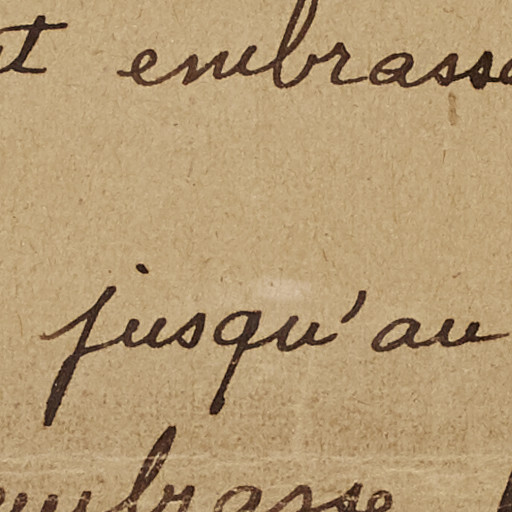 embrasse
jusqu'au
embrasse